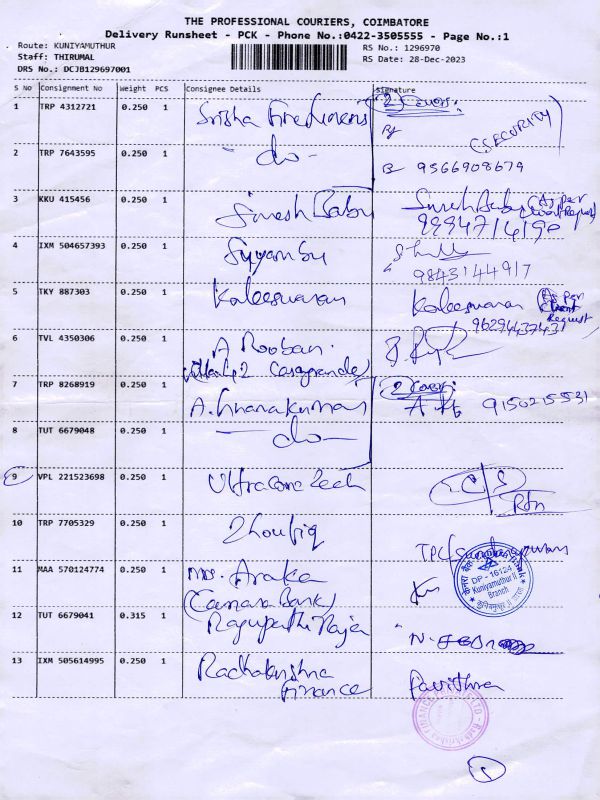 THE PROFESSIONAL COURIERS, COIMBATORE
Delivery Runsheet - PCK - Phone No.:0422-3505555 - Page No.:1
Route: KUNIYAMUTHUR
Staff: THIRUMAL
DRS No.: DCJB129697001
RS No.: 1296970
RS Date: 28-Dec-2023
S No Consignment No Weight PCS Consignee Details Signature
1 TRP 4312721 0.250 1 Srisha (2 Covers)
(SECURITY)
2 TRP 7643595 0.250 1 -do- 9566908679
3 KKU 415456 0.250 1 Suresh Babu Suresh Babu (As per
Request)
9994714190
4 IXM 504657393 0.250 1
9843144917
5 TKY 887303 0.250 1 Kaleeswaran Kaleeswaran As per
Client
Request
9629443743
6 TVL 4350306 0.250 1 A Rooban.
Casagrande)
7 TRP 8268919 0.250 1 A. Gnanakumar (2 Cover)
9150215531
8 TUT 6679048 0.250 1 -do-
9 VPL 221523698 0.250 1 Ultracore Tech
Rtn
10 TRP 7705329 0.250 1
11 MAA 570124774 0.250 1 Mrs.
(Canara Bank)
DP - 16124
Kuniyamuthur II
Branch
12 TUT 6679041 0.315 1 Ragupathi Raja N.
13 IXM 505614995 0.250 1 Radhakrishna Pavithra
Finance